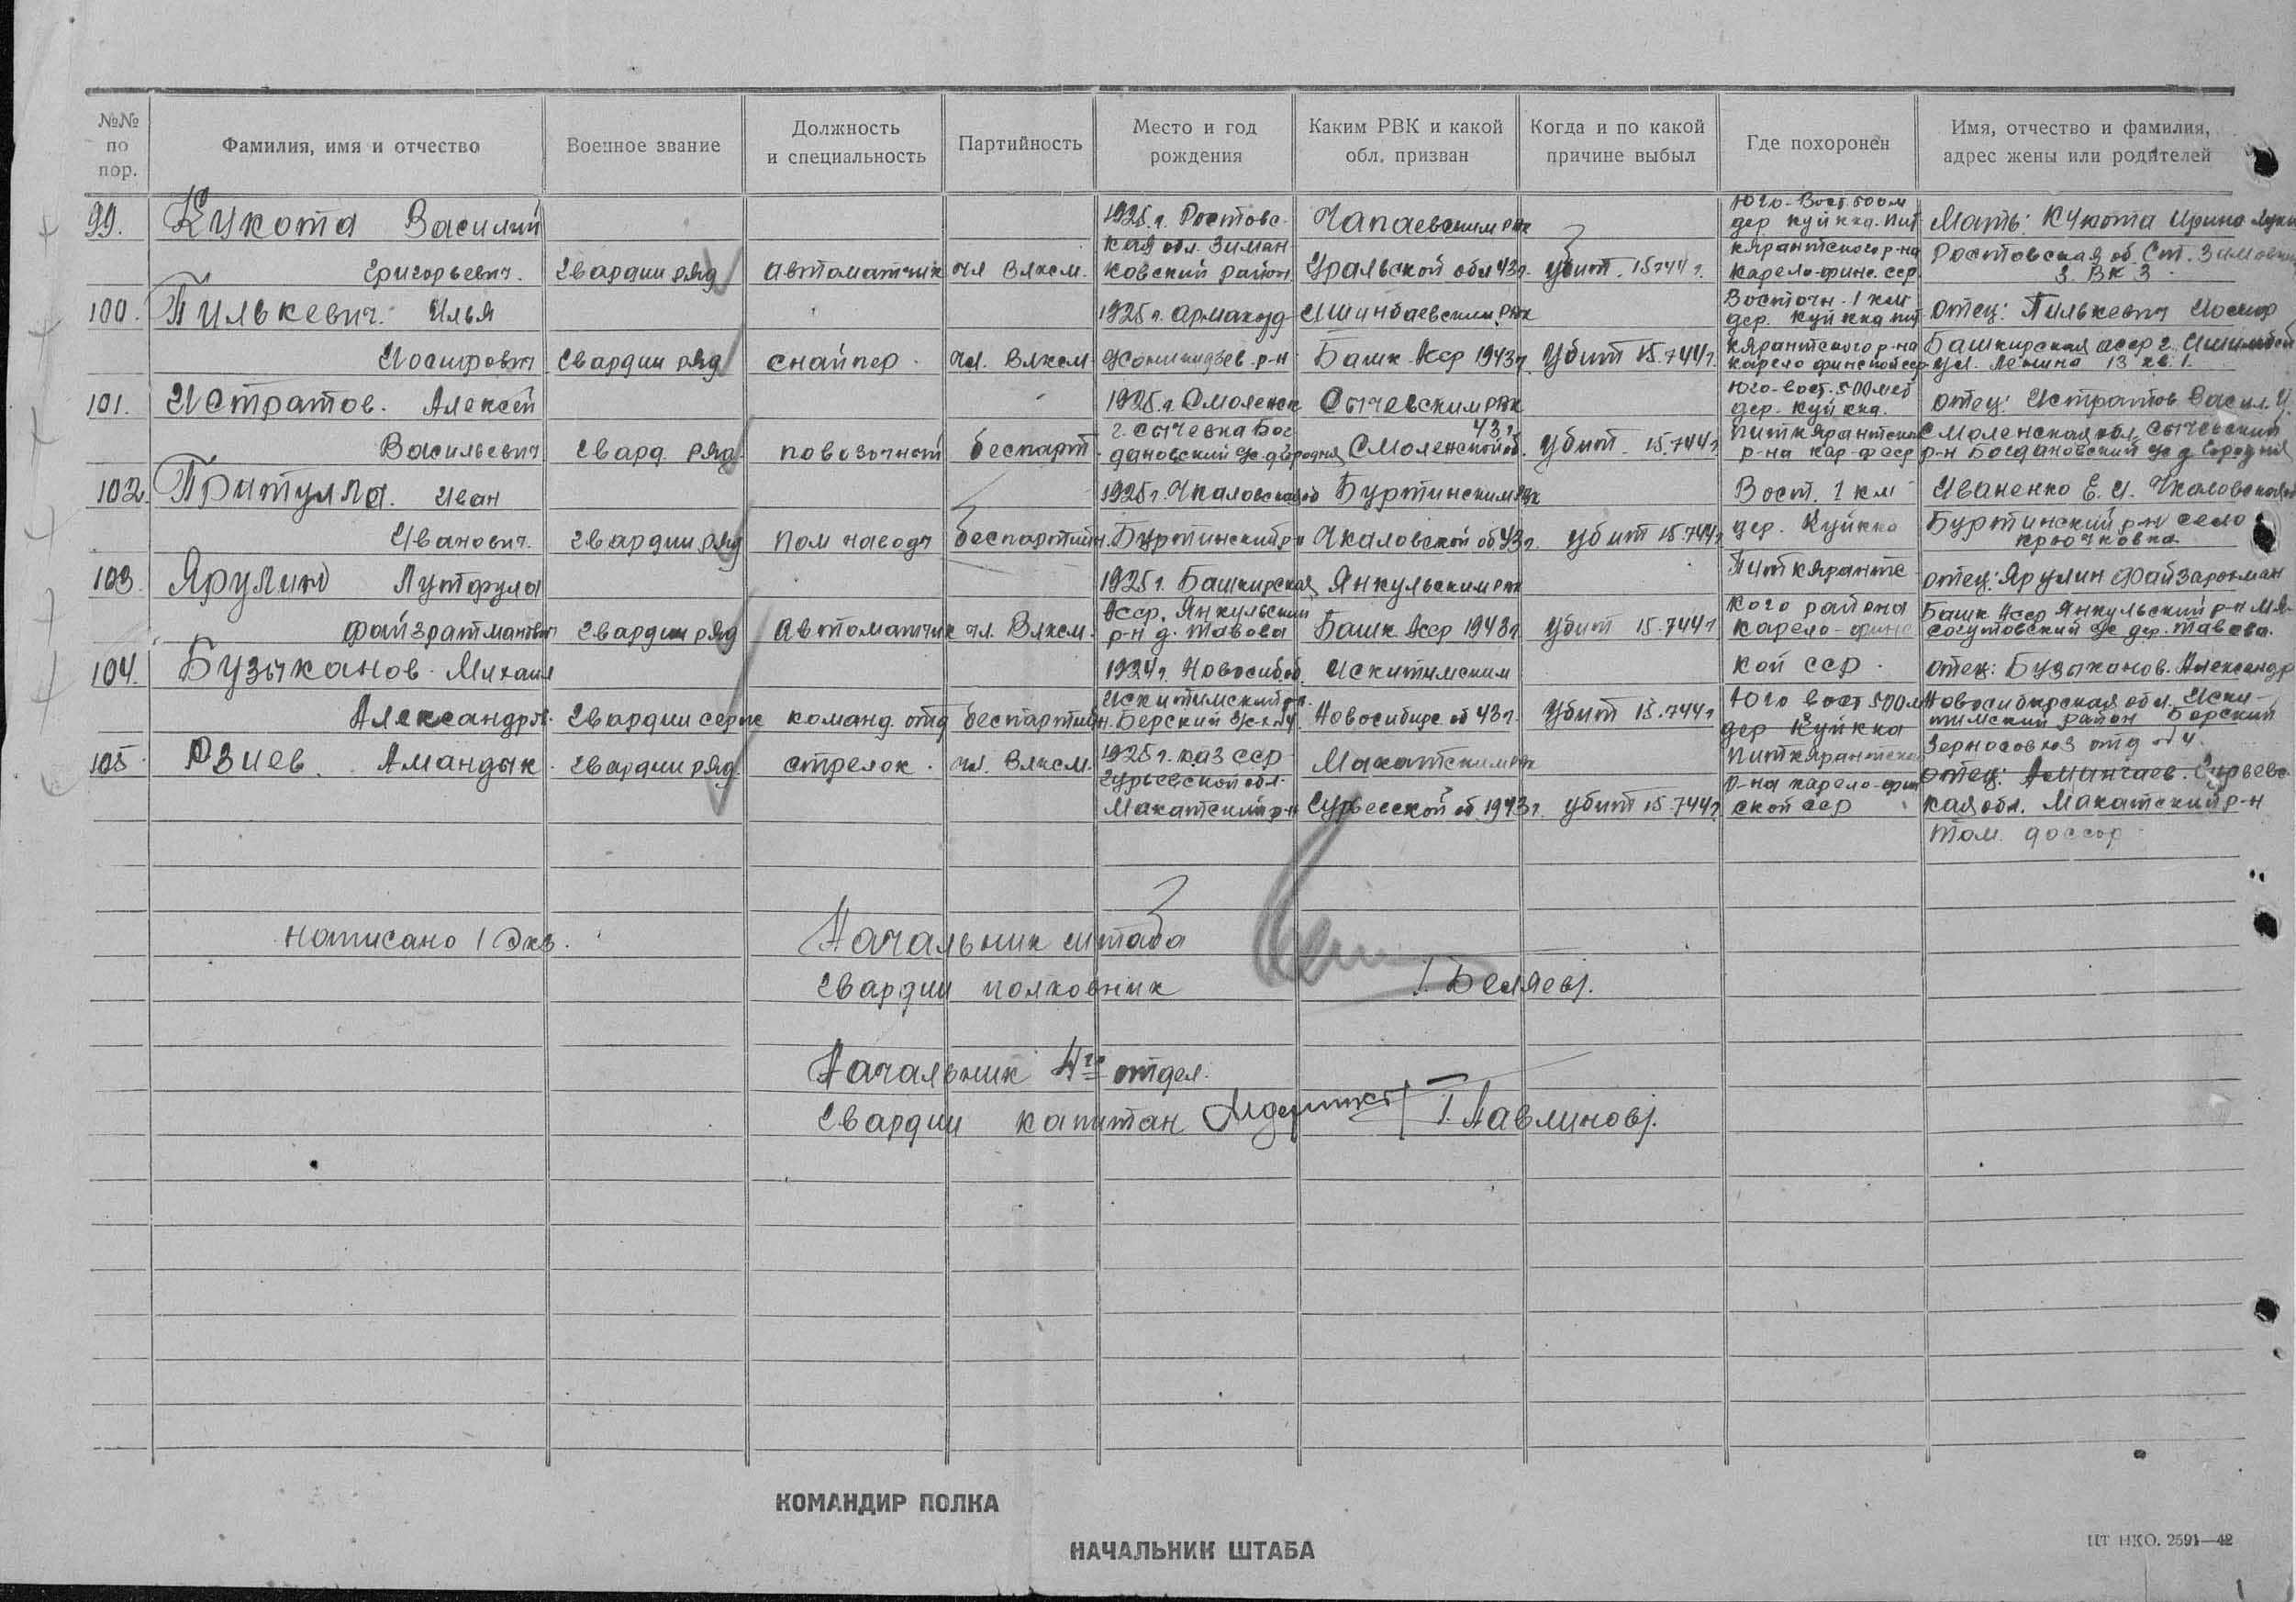 №№ по пор.
Фамилия, имя и отчество
Военное звание
Должность и специальность
Партийность
Место и год рождения
Каким РВК и какой обл. призван
Когда и по какой причине выбыл
Где похоронен
Имя, отчество и фамилия, адрес жены или родителей
99. Кукота Василий
Григорьевич. Гвардии ряд автоматчик чл Влксм.
1925 г. Ростовс-
кая обл. Зимов
ковский район
Чапаевским рвк
Уральской обл 43 г.
убит. 15.7 44 г.
Юго-Вост 500 м
дер Куйкка. Пит
кярантского р-на
Карело-финс. сср
Мать: Кукота Ирина
Ростовская об. Ст.
3. ВКЗ
100. Пилькевич. Илья
Иосифович Гвардии ряд снайпер. чл. Влксм
1925 г.
р-н
Ишинбаевским рвк
Башк. Асср 1943 г.
Убит 15.7 44 г.
Восточн. 1 км
дер. Куйкка пит
кярантского р-на
карело финской сср
отец: Пилькевич Иосиф
Башкирская асср г. Ишимбай
ул. Ленина 13 кв. 1.
101. Истратов. Алексей
Васильевич Гвард. ряд. повозочный беспарт.
1925 г. Смоленск
г. Сычевка Бог
дановский с/с д. Городня
Сычевским рвк
43 г.
Смоленской об.
Убит. 15.7 44 г
Юго-вост. 500 мет
дер. Куйкка.
питкярантско
р-на кар-ф сср
отец: Истратов Васил. И
Смоленская обл. Сычевский
р-н Богдановский с/с д Городня
102. Притулла. Иван
Иванович. Гвардии ряд пом наводч беспартийн.
1925 г. Чкаловская об
Буртинский р-н
Буртинским рвк
Чкаловской об 43 г.
убит 15.7 44 г
Вост. 1 км
дер. Куйкка
Питкярантс
кого района
карело-финс
кой сср.
Иваненко Е. И. Чкаловская об
Буртинский р-н село
Крючковка
103. Ярулин Лутфула
Гвардии ряд Автоматчик чл. Влксм.
1925 г. Башкирская
Асср. Янкульский
р-н д. Тавова
Янкульским рвк
Башк. Асср 1943 г
убит 15.7 44 г
отец: Ярулин
Башк Асср Янкульский р-н
с/с дер. Тавова.
104. Бузыканов. Михаил
Александр. Гвардии серж команд. отд беспартийн.
1924 г. Новосиб. об.
Искитимский р-н.
Берский
Искитимским
Новосибирс об 43 г.
Убит 15.7 44 г
Юго вост 500 м
дер Куйкка
Питкярантско
р-на карело-фин
ской сср
отец: Бузыканов. Александр
Новосибирская обл. Иски-
тимский район Берский
Зерносовхоз отд № 4.
105. Азиев. Амандык. Гвардии ряд. стрелок. чл. Влксм.
1925 г. каз сср
Гурьевской обл.
Макатский р-н
Макатским рвк
Гурьевской об. 1943 г.
убит 15.7 44 г
отец: Амингаев. Гурьевс-
кая обл. Макатский р-н
Том. доссор
написано 1 экз.
Начальник штаба
Гвардии полковник /. Беляев/.
Начальник 4го отдел.
Гвардии капитан /. Павлинов/.
КОМАНДИР ПОЛКА
НАЧАЛЬНИК ШТАБА
ЦТ НКО. 2591—42